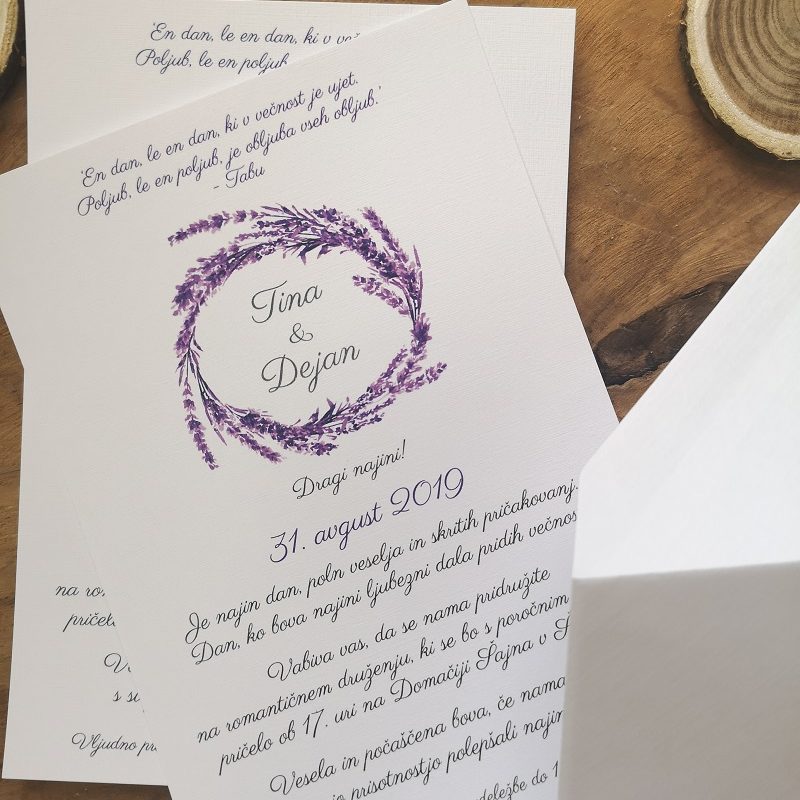 'En dan, le en dan, ki v več
Poljub, le en poljub
'En dan, le en dan, ki v večnost je ujet.
Poljub, le en poljub, je obljuba vseh obljub.'
- Tabu
Tina
&
Dejan
Dragi najini!
31. avgust 2019
Je najin dan, poln veselja in skritih pričakovanj.
Dan, ko bova najini ljubezni dala pridih večnos
Vabiva vas, da se nama pridružite
na romantičnem druženju, ki se bo s poročnim
pričelo ob 17. uri na Domačiji Šajna v Š
Vesela in počaščena bova, če nama
prisotnostjo polepšali najin
deležbe do 1
na ro
pričel
V
s s
Vljudno pr